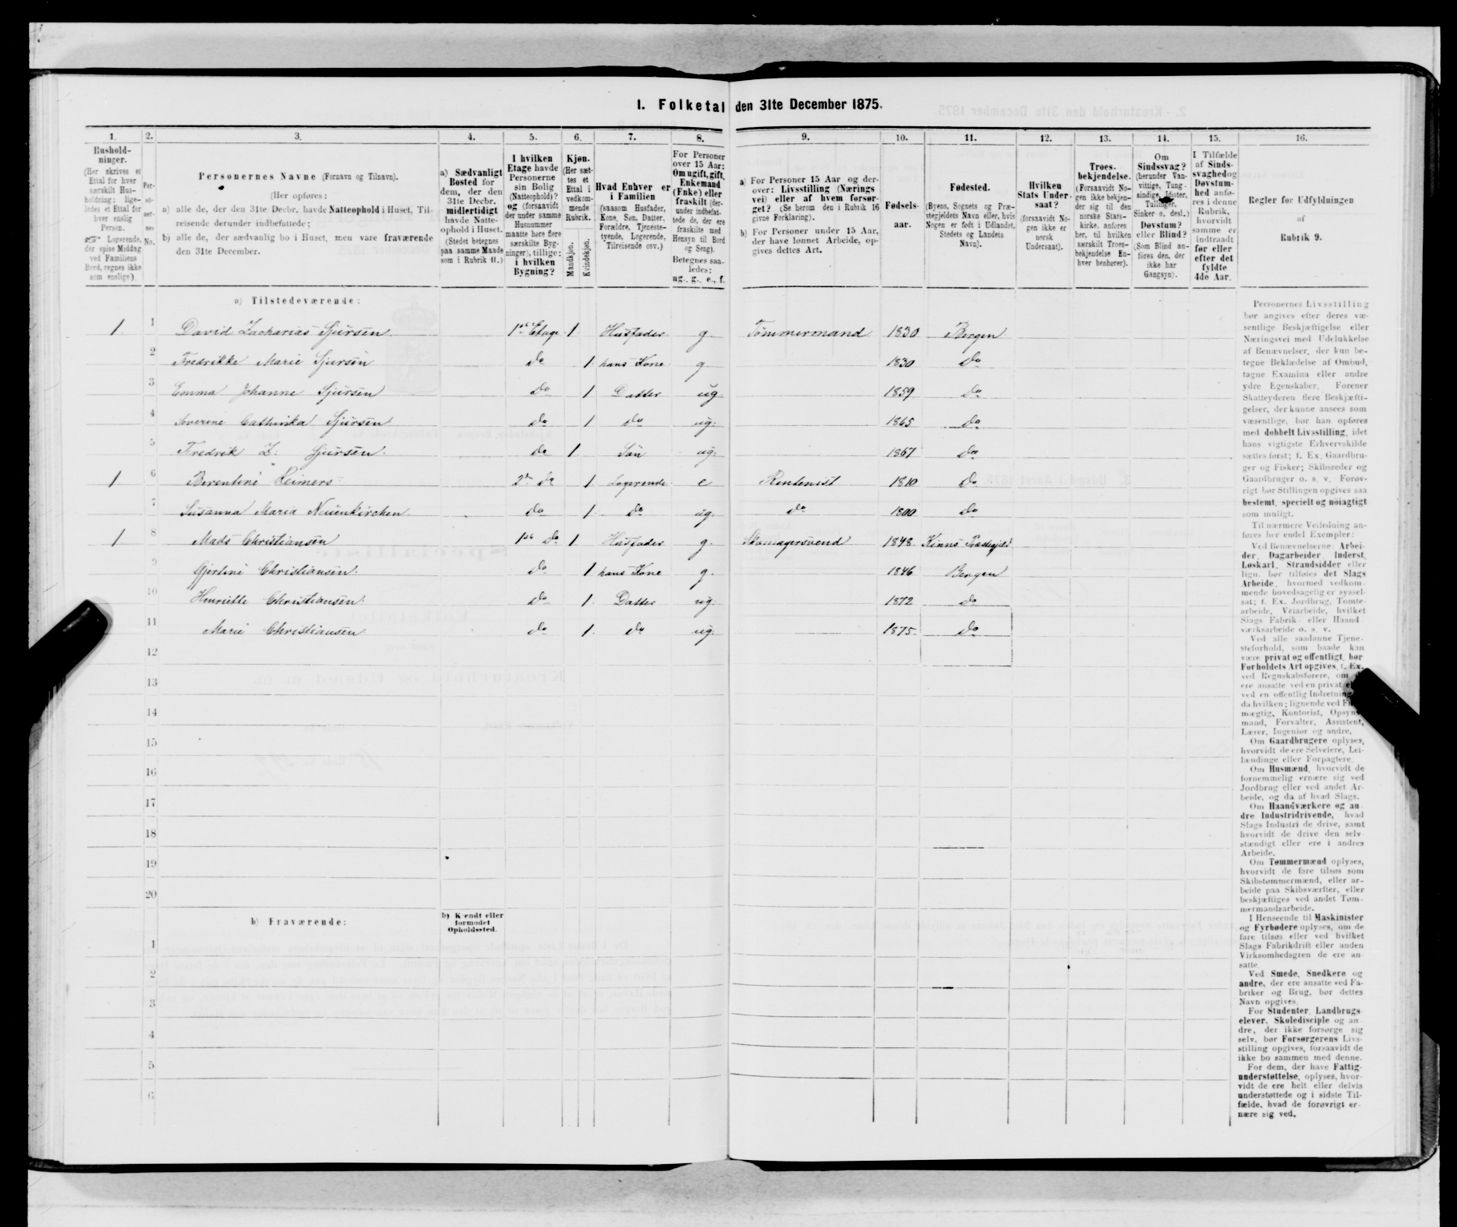 1. Folketal den 31te December 1875.
1. 2. 3. 4. 5. 6. 7. 8. 9. 10. 11. 12. 13. 14. 15. 16.
Hushold-
ninger.
(Her skrives et
Ettal for hver
særskilt Hus-
holdning; lige-
ledes et Ettal for
hver enslig
Person.
Logerende,
der spise Middag
ved Familiens
Bord, regnes ikke
som enslige).
Per-
so-
ner-
nes
No.
Personernes Navne (Fornavn og Tilnavn).
(Her opføres:
a) alle de, der den 31te Decbr. havde Natteophold i Huset, Til-
reisende derunder indbefattede;
b) alle de, der sædvanlig bo i Huset, men vare fraværende
den 31te December.
a) Sædvanligt
Bosted for
dem, der den
31te Decbr.
midlertidigt
havde Natte-
ophold i Huset.
(Stedet betegnes
paa samme Maade
som i Rubrik 11.)
I hvilken
Etage havde
Personerne
sin Bolig
(Natteophold)?
og (forsaavidt
der under samme
Husnummer
maatte høre flere
særskilte Byg-
ninger), tillige:
i hvilken
Bygning?
Kjøn.
(Her sæt-
tes et
Ettal i
vedkom-
mende
Rubrik.
Mandkjøn.
Kvindekjøn.
Hvad Enhver er
i Familien
(saasom Husfader,
Kone, Søn, Datter,
Forældre, Tjeneste-
tyende, Logerende,
Tilreisende osv.)
For Personer
over 15 Aar:
Om ugift, gift,
Enkemand
(Enke) eller
fraskilt (der-
under indbefat-
tede de, der ere
fraskilte med
Hensyn til Bord
og Seng).
Betegnes saa-
ledes:
ug., g., e., f.
a) For Personer 15 Aar og der-
over: Livsstilling (Nærings
vei) eller af hvem forsør-
get? (Se herom den i Rubrik 16
givne Forklaring).
b) For Personer under 15 Aar,
der have lønnet Arbeide, op-
gives dettes Art.
Fødsels-
aar.
Fødested.
(Byens, Sognets og Præ-
stegjeldets Navn eller, hvis
Nogen er født i Udlandet,
Stedets og Landets
Navn).
Hvilken
Stats Under-
saat?
(forsaavidt No-
gen ikke er
norsk
Undersaat).
Troes-
bekjendelse.
(Forsaavidt No-
gen ikke bekjen-
der sig til den
norske Stats-
kirke, anføres
her, til hvilken
særskilt Troes-
bekjendelse En-
hver henhører).
Om
Sindssvag?
(herunder Van-
vittige, Tung-
sindige, Idioter,
Tullinger,
Sinker o. desl.)
Døvstum?
eller Blind?
(Som Blind an-
føres den, der
ikke har
Gangsyn).
I Tilfælde
af Sinds-
svaghed og
Døvstum-
hed anfø-
res i denne
Rubrik,
hvorvidt
samme er
indtraadt
før eller
efter det
fyldte
4de Aar.
Regler før Udfyldningen
af
Rubrik 9.
a) Tilstedeværende:
1 1 David Zacharias Sjursen 1ste Etage 1 Husfader g Tømmermand 1830 Bergen
2 Fredrikke Marie Sjursen do 1 hans Kone g 1830 do
3 Emma Johanne Sjursen do 1 Datter ug 1859 do
4 Cathinka Sjursen do 1 do ug. 1865 do
5 Fredrik Z. Sjursen do 1 Søn ug. 1867 do
1 6 Berentine Reimers 2den do 1 Logerende e Rentenist 1810 do
7 Susanna Maria Nieenkirchen do 1 do ug. do 1800 do
1 8 Mads Christiansen 1ste do 1 Husfader g. Skomagersvend 1848 Kinns Præstegjeld
9 Gjertine Christiansen. do 1 hans Kone g. 1846 Bergen
10 Henriette Christiansen. do 1. Datter ug. 1872 do
11 Marie Christiansen do 1. do ug. 1875. do
12
13
14
15
16
17
18
19
20
b) Fraværende:
b) Kjendt eller
formodet
Opholdssted.
1
2
3
4
5
6
Personernes Livsstilling
bør angives efter deres væ-
sentlige Beskjæftigelse eller
Næringsvei med Udelukkelse
af Benævnelser, der kun be-
tegne Beklædelse af Ombud,
tagne Examina eller andre
ydre Egenskaber. Forener
Skatteyderen flere Beskjæfti-
gelser, der kunne ansees som
væsentlige, bør han opføres
med dobbelt Livsstilling, idet
hans vigtigste Erhvervskilde
sættes først; f. Ex. Gaardbru-
ger og Fisker; Skibsreder og
Gaardbruger o. s. v. Forøv-
rigt bør Stillingen opgives saa
bestemt, specielt og nøiagtigt
som muligt.
Til nærmere Veiledning an-
føres her endel Exempler:
Ved Benævnelserne: Arbei-
der, Dagarbeider, Inderst,
Løskarl, Strandsidder eller
lign. bør tilføies det Slags
Arbeide, hvormed vedkom-
mende hovedsagelig er syssel-
sat; f. Ex. Jordbrug, Tomte-
arbeide, Veiarbeide, hvilket
Slags Fabrik- eller Haand-
værksarbeide o. s. v.
Ved alle saadanne Tjene-
steforhold, som baade kan
være privat og offentligt, bør
Forholdets Art opgives, f. Ex.
ved Regnskabsførere, om de
ere ansatte ved en privat eller
ved en offentlig Indretning og
da hvilken; lignende ved Fuld-
mægtig, Kontorist, Opsyns-
mand, Forvalter, Assistent,
Lærer, Ingeniør og andre.
Om Gaardbrugere oplyses,
hvorvidt de ere Selveiere, Lei-
lændinge eller Forpagtere.
Om Husmænd, hvorvidt de
fornemmelig ernære sig ved
Jordbrug eller ved andet Ar-
beide, og da af hvad Slags.
Om Haandværkere og an-
dre Industridrivende, hvad
Slags Industri de drive, samt
hvorvidt de drive den selv-
stændigt eller ere i andres
Arbeide.
Om Tømmermænd oplyses,
hvorvidt de fare tilsøs som
Skibstømmermænd, eller ar-
beide paa Skibsværfter, eller
beskjæftiges ved andet Tøm-
mermandsarbeide.
I Henseende til Maskinister
og Fyrbødere oplyses, om de
fare tilsøs eller ved hvilket
Slags Fabrikdrift eller anden
Virksomhedsgren de ere an-
satte.
Ved Smede, Snedkere og
andre, der ere ansatte ved Fa-
briker og Brug, bør dettes
Navn opgives.
For Studenter, Landbrugs-
elever, Skoledisciple og an-
dre, der ikke forsørge sig
selv, bør Forsørgerens Livs-
stilling opgives, forsaavidt de
ikke bo sammen med denne.
For dem, der have Fattig-
understøttelse, oplyses, hvor-
vidt de ere helt eller delvis
understøttede og i sidste Til-
fælde, hvad de forøvrigt er-
nære sig ved.